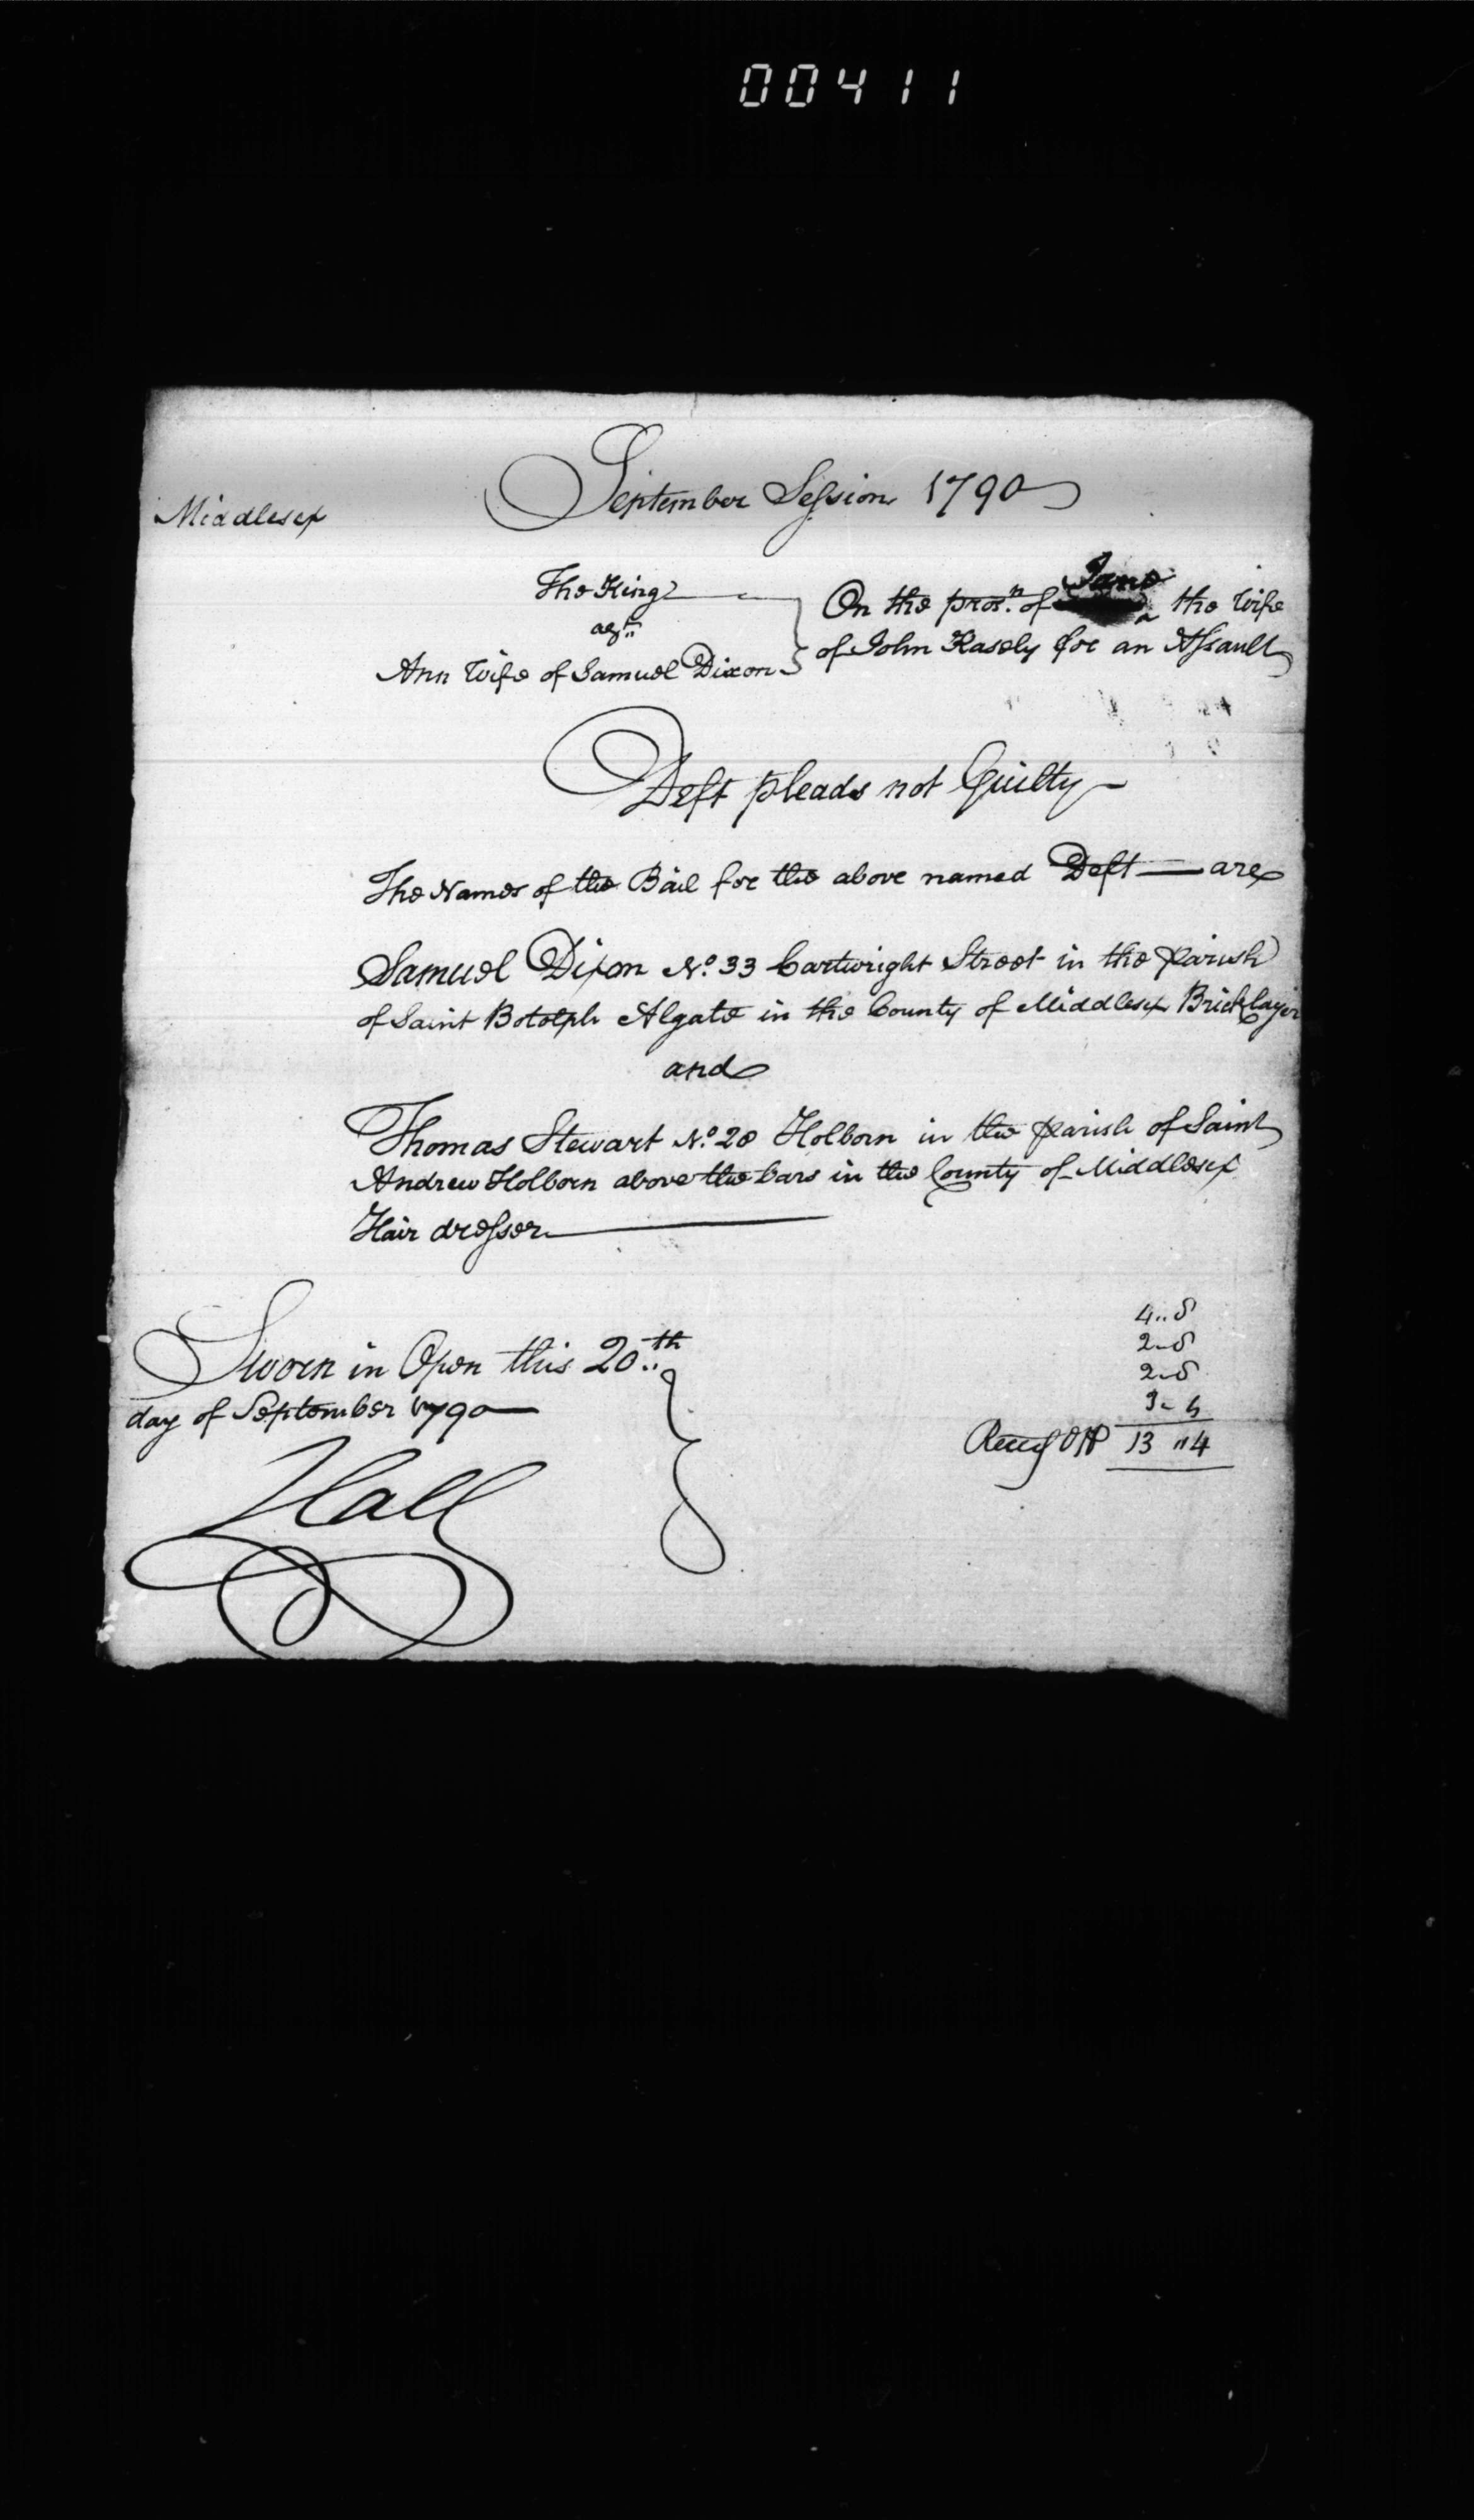 00411
September Session 1790
Middlesex
The King
agt.
Ann Wife of Samuel Dixon
On the prosn. of Jane the Wife
of John Kasely for an Assault
Deft pleads not Guilty
The Names of the Bail for the above named Deft — are
Samuel Dixon No. 33 Cartwright Street in the Parish
of Saint Botolph Algate in the County of Middlesex Bricklayer
and
Thomas Stewart No. 28 Holborn in the Parish of Saint
Andrew Holborn above the bars in the County of Middlesex
Hair dresser
Sworn in Open this 20th
day of September 1790
Hall
4..8
2-8
2-8
13 "4